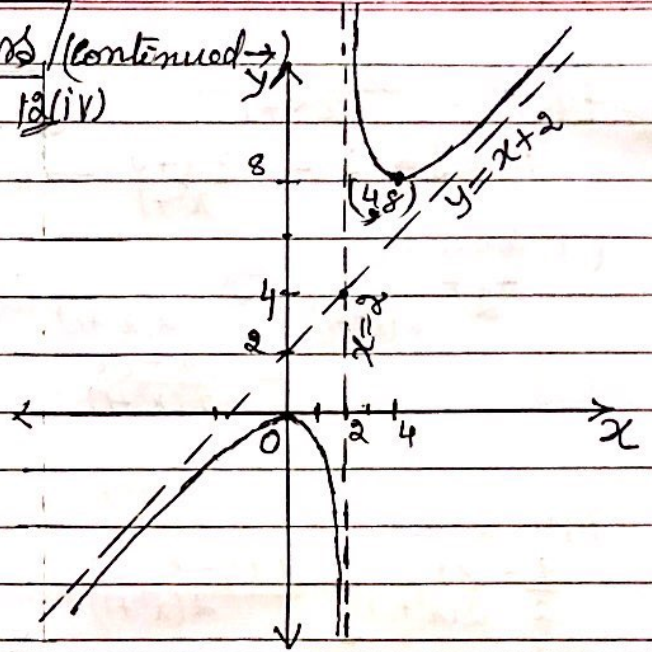 (continued→)
y
12(iv)
8
(4,8)
y=x+2
4
x=2
2
0
2
4
x